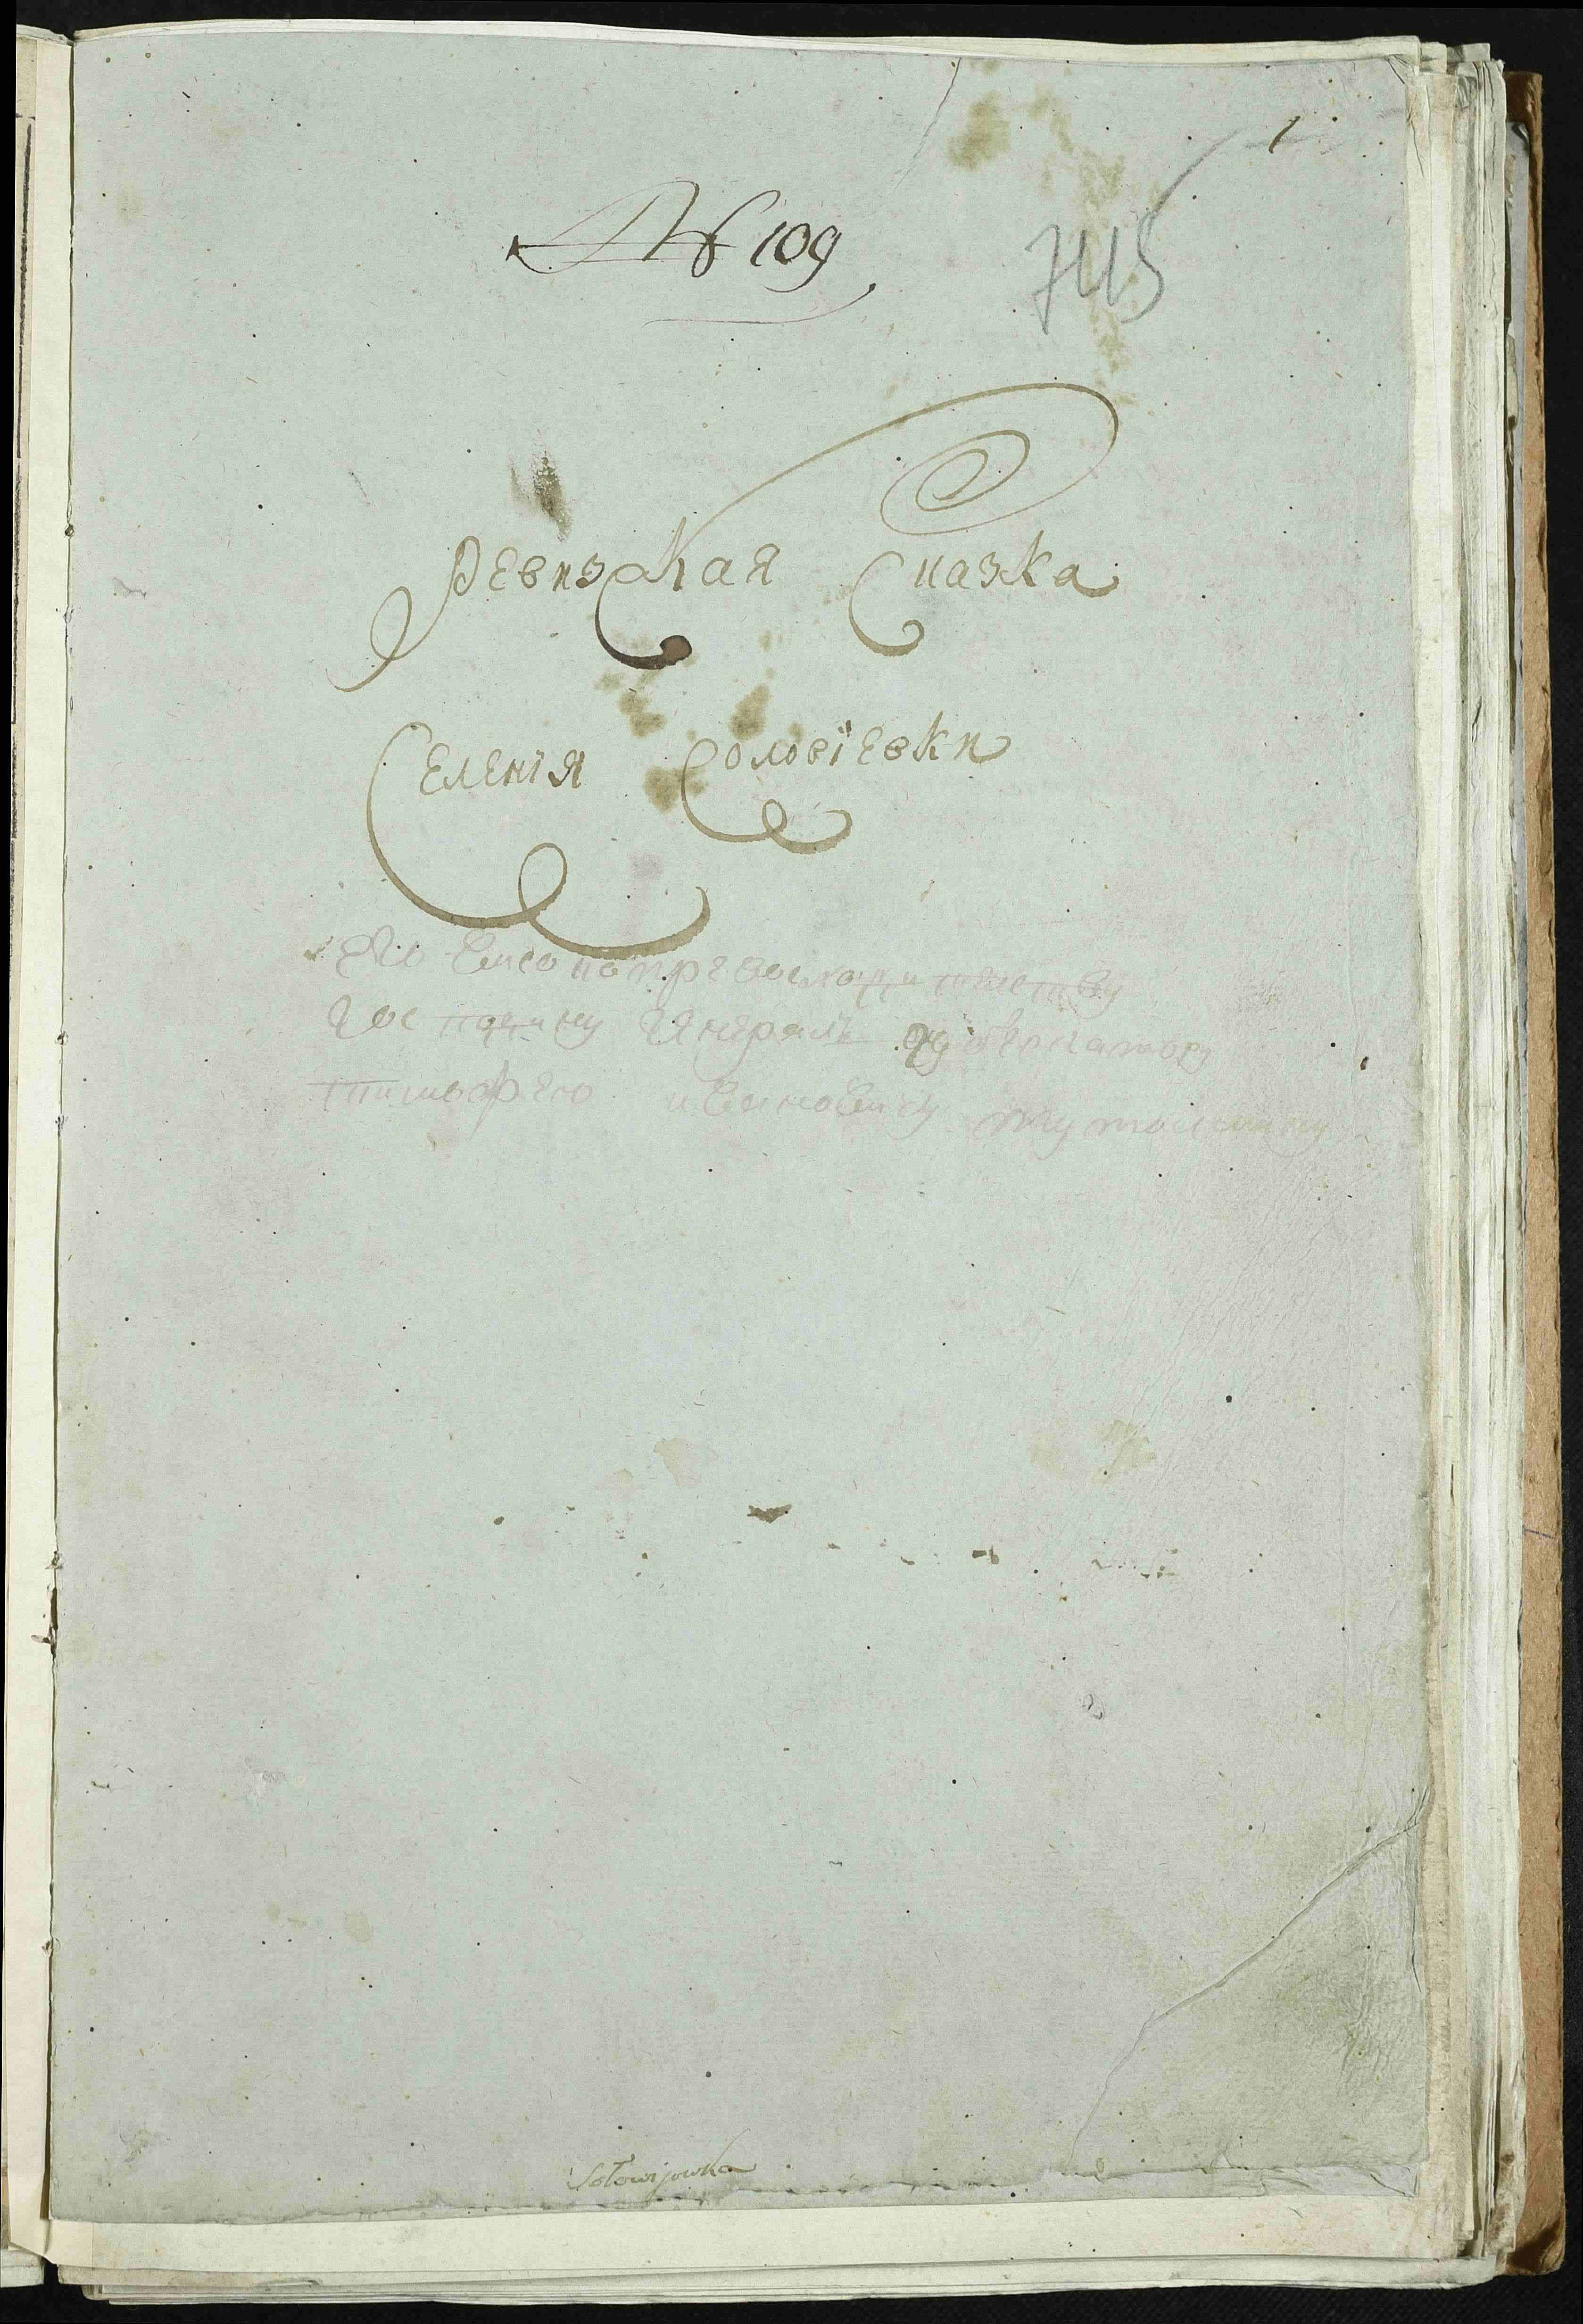 1
№ 109
745
Ревизская Сказка
Селенія Соловіевки
Его висо попревосходителству
Господину Генералъ губернатору
тимофею ивановичу тутолмину
Sołowijowka